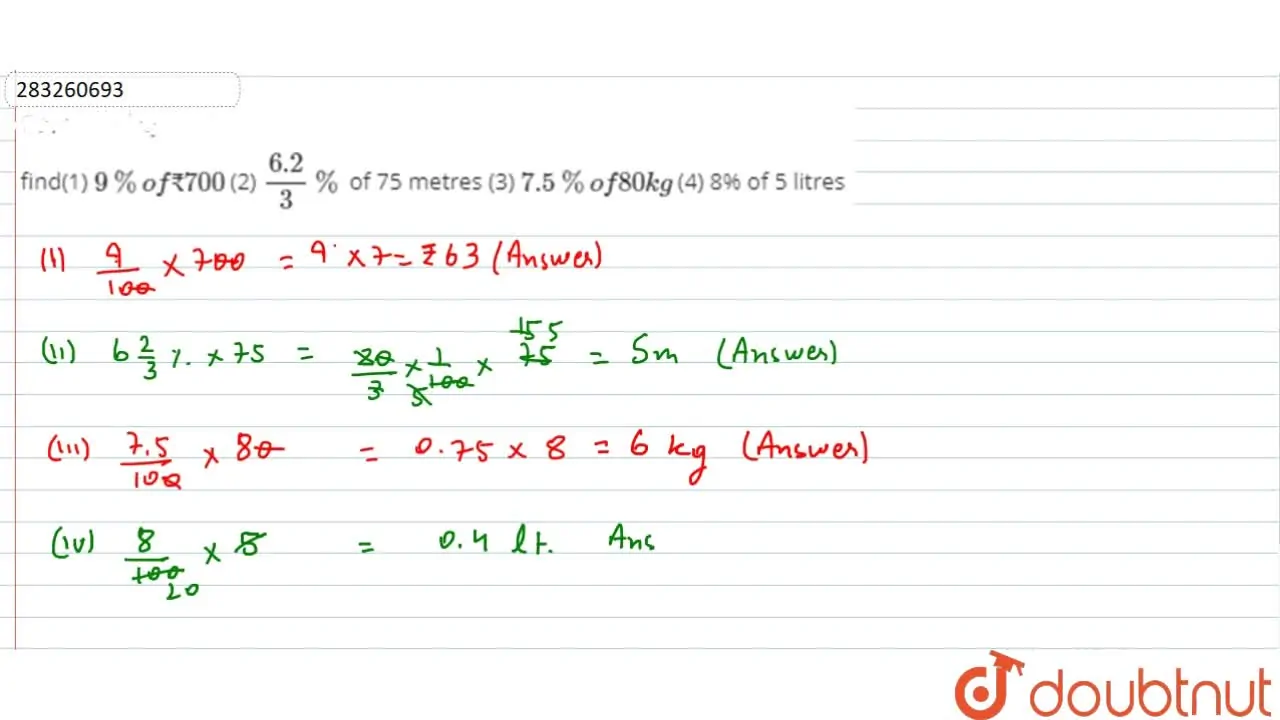 283260693
find(1) 9 % of ₹700 (2) 6.2/3 % of 75 metres (3) 7.5 % of 80kg (4) 8% of 5 litres
(i) 9/100 × 700 = 9 × 7 = ₹63 (Answer)
(ii) 6 2/3 %. × 75 = 20/3 × 1/100 5 × 75 15 5 = 5m (Answer)
(iii) 7.5/100 × 80 = 0.75 × 8 = 6 kg (Answer)
(iv) 8/100 20 × 5 = 0.4 lt. Ans
doubtnut